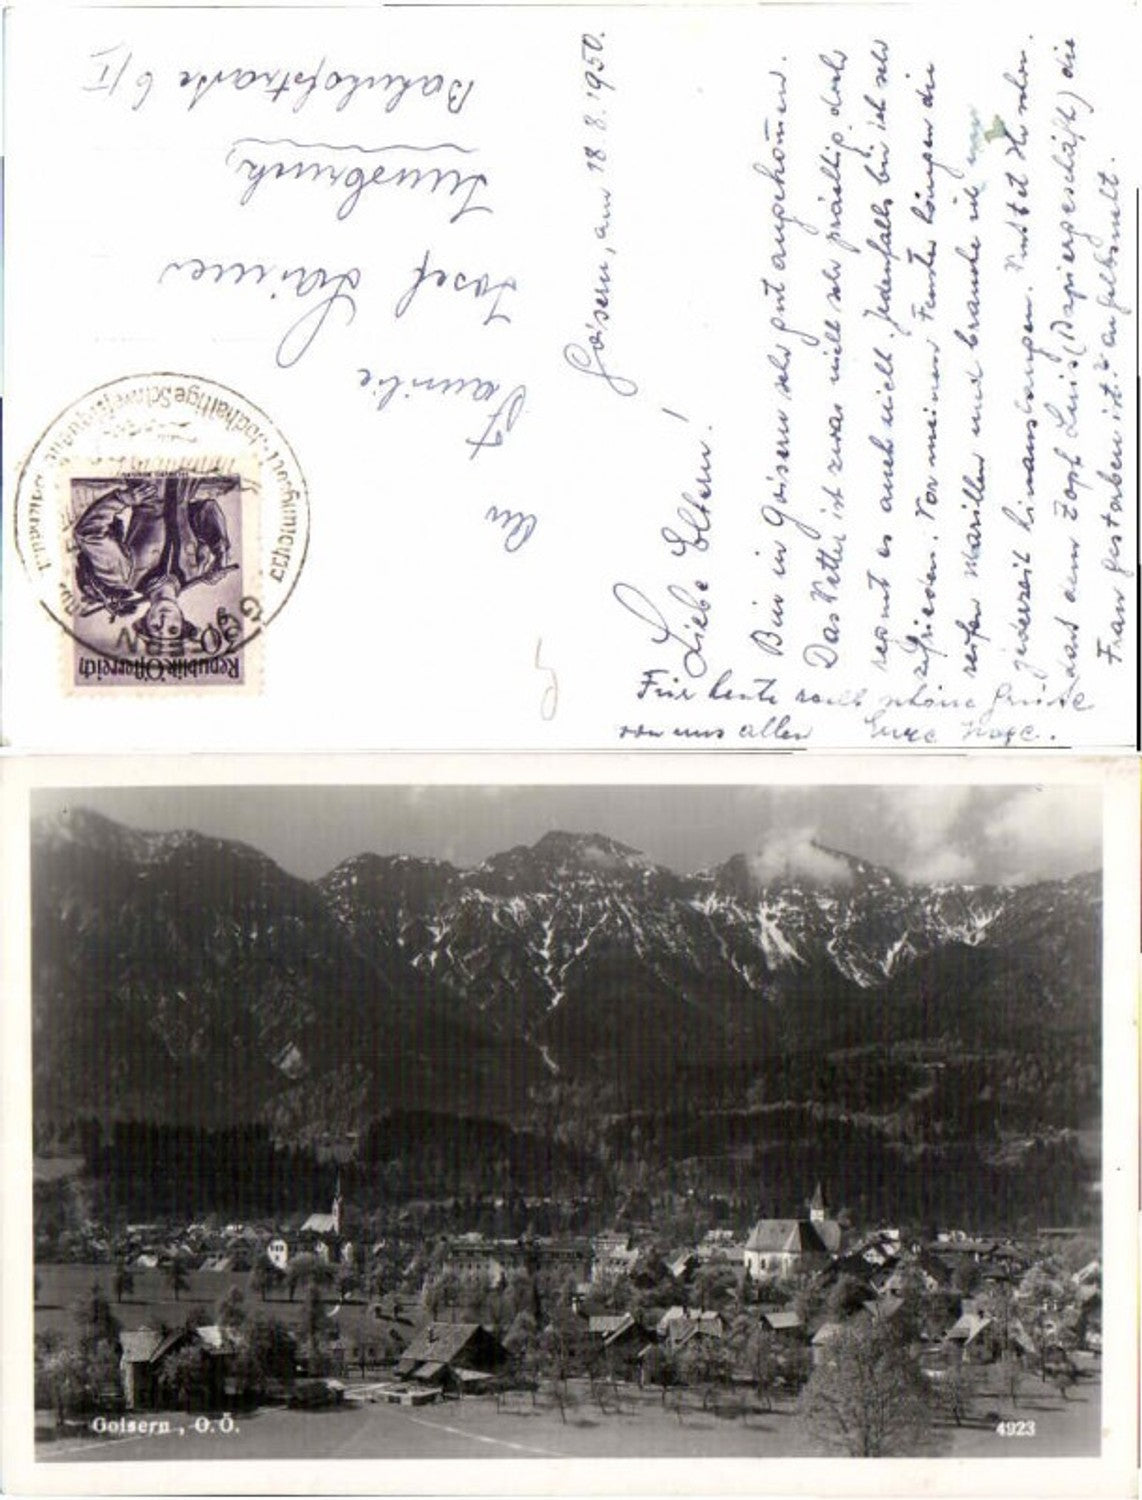 Goisern, am 18.8.1950.
Liebe Eltern!
Bin in Goisern sehr gut angekommen.
Das Wetter ist zwar nicht sehr prächtig, doch
regnet es auch nicht. Jedenfalls bin ich sehr
zufrieden. Vor meinem Fenster hängen die
reifen Marillen und brauche ich nur
jederzeit hinauslangen. Wißt Ihr schon,
daß dem Zopf Luis (Papiergeschäft) die
Frau gestorben ist?
Für heute recht schöne Grüße
von uns allen Eure
An
Familie
Josef
Innsbruck,
Bahnhofstraße 6/I
Republik Österreich
GOISERN
jodhaltige Schwefelquelle
Goisern, O.Ö.
4923